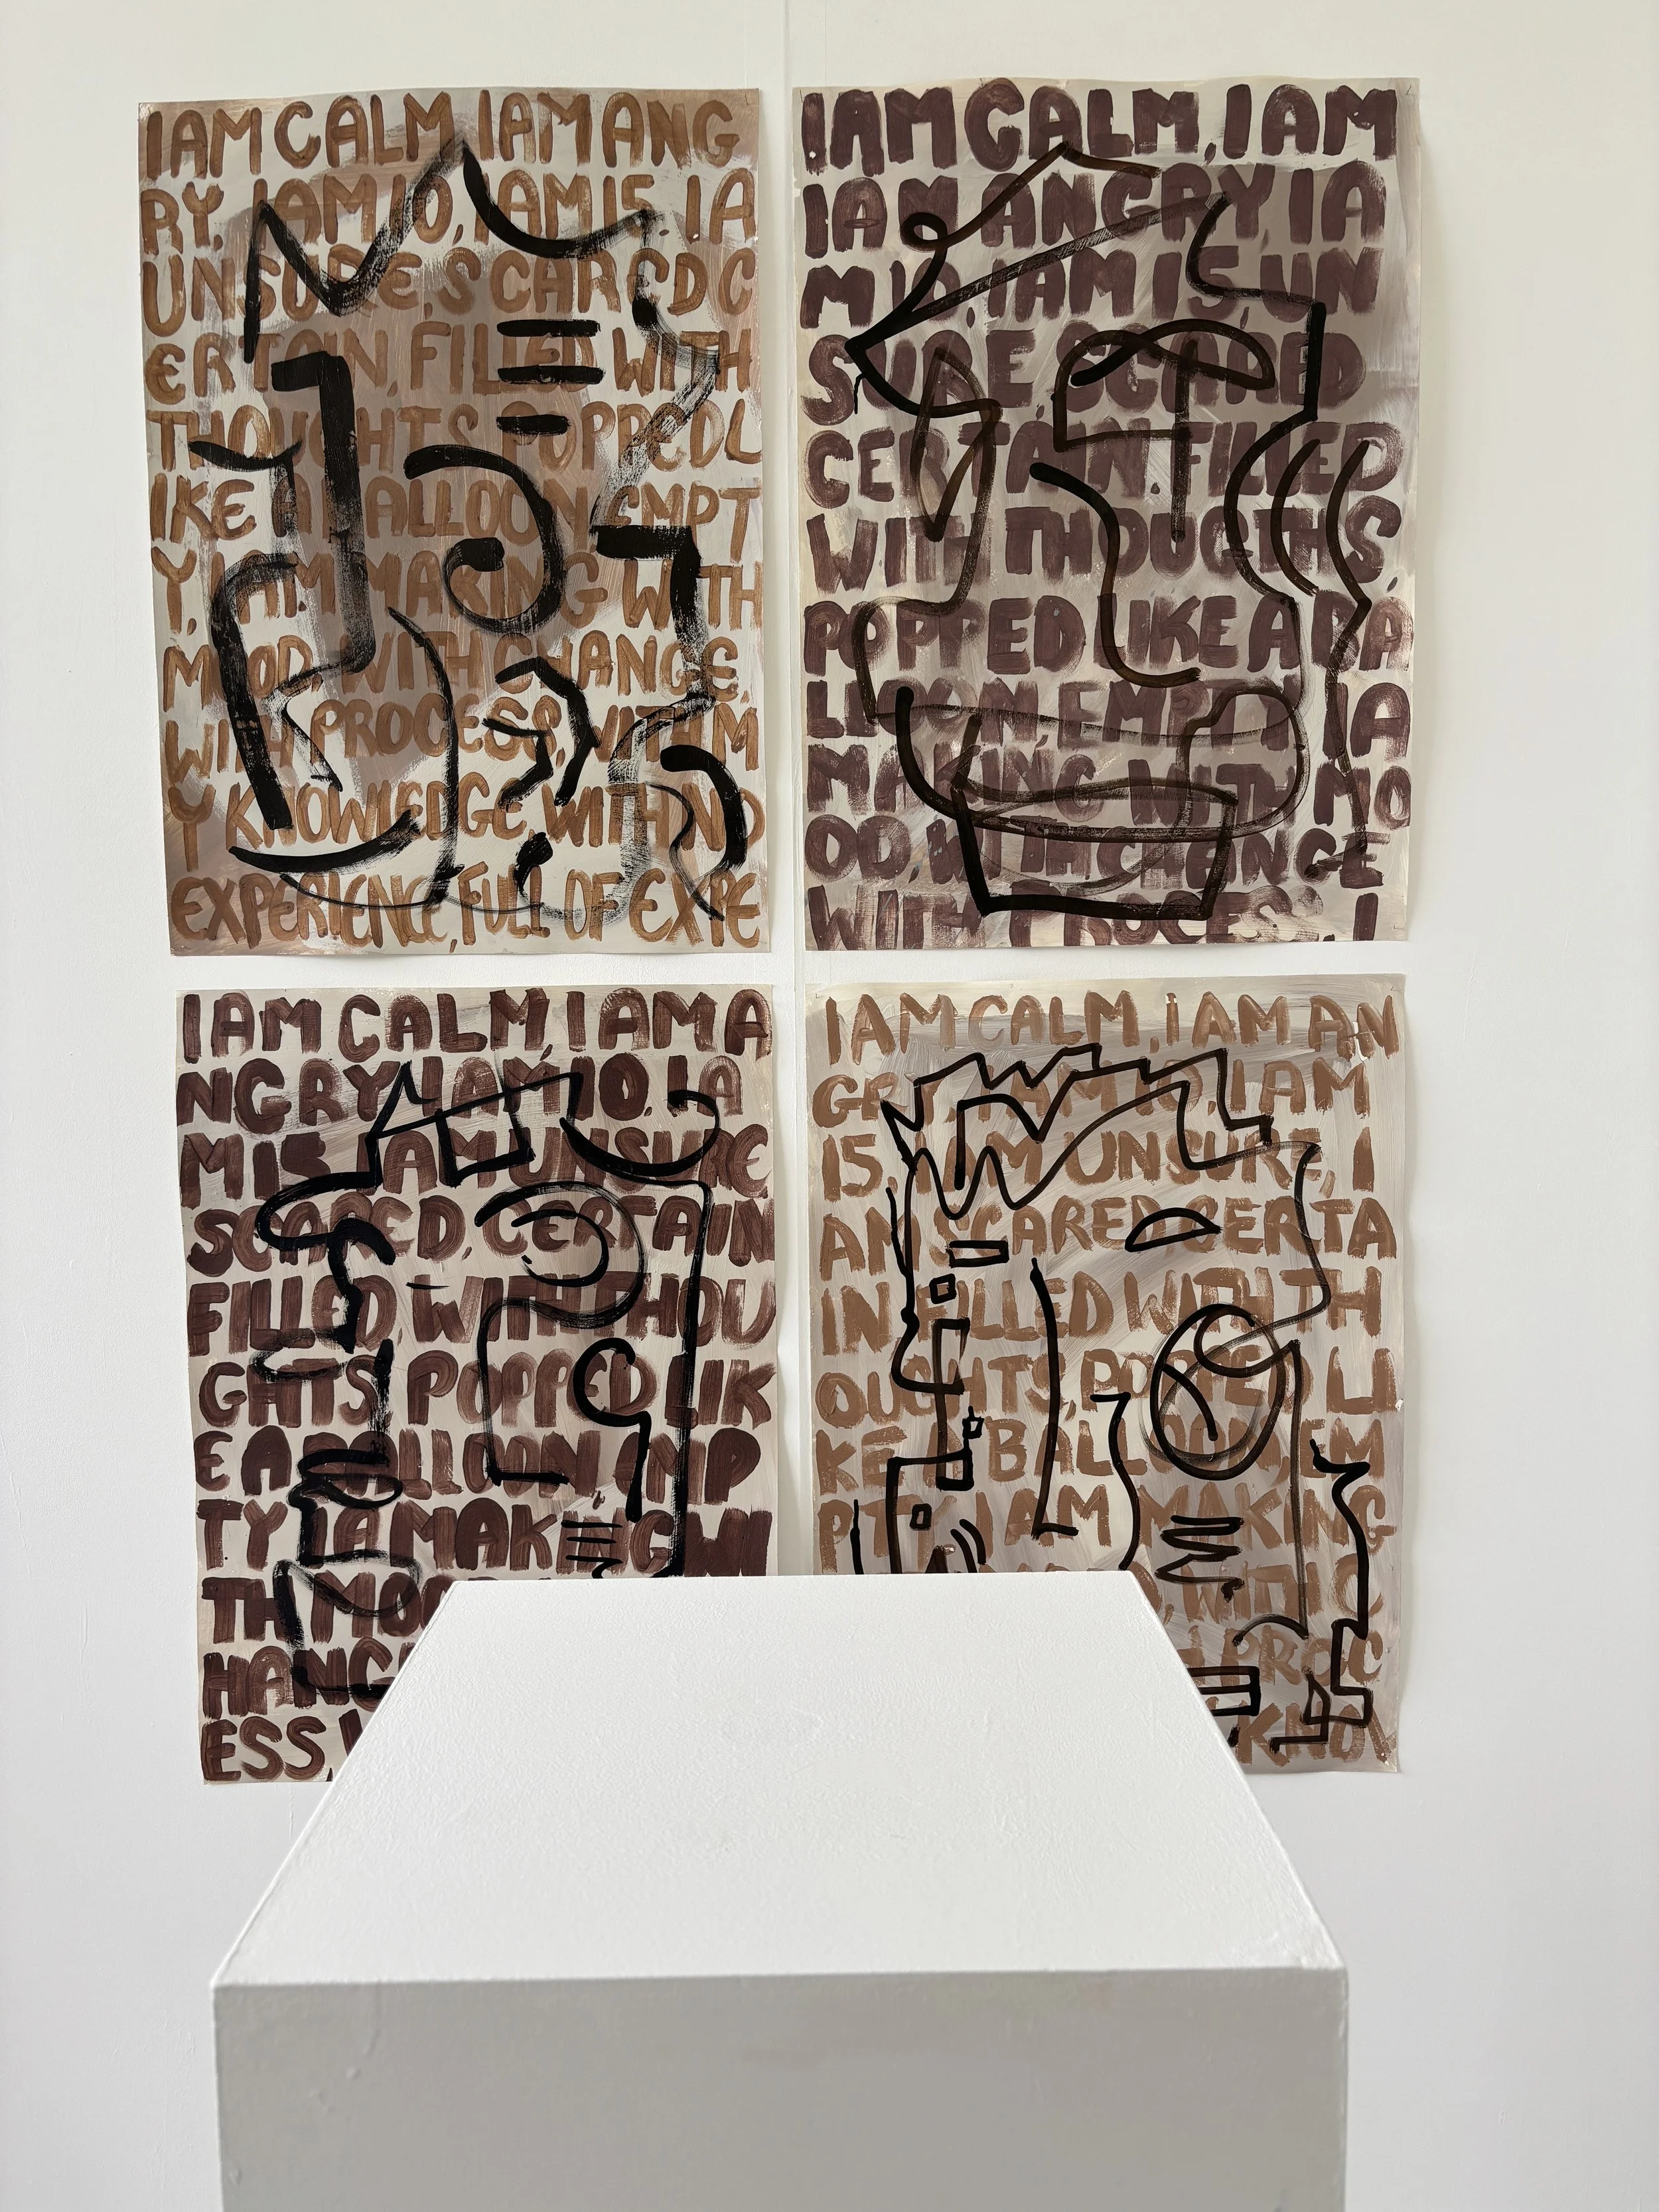 I AM CALM I AM ANG
RY, I AM 10, I AM 15, I A
UNSURE, SCARED C
ERTAIN, FILLED WITH
THOUGHTS POPPED L
IKE A BALLOON EMPT
Y, I AM MAKING WITH
MOOD, WITH CHANGE,
WITH PROCESS, WITH M
Y KNOWLEDGE, WITH NO
EXPERIENCE, FULL OF EXPE
I AM CALM, I AM
I AM ANGRY, I A
M 10, I AM 15, UN
SURE, SCARED
CERTAIN. FILLED
WITH THOUGTHS,
POPPED LIKE A BA
LLOON, EMPTY IA
MAKING WITH MO
OD, WITH CHANGE
WITH PROCESS, I
I AM CALM, I AM A
NGRY, I AM 10, IA
M 15, I AM UNSURE
SCARED, CERTAIN
FILLED, WITH THOU
GHTS POPPED LIK
E A BALLOON, EMP
TY IA MAKING WI
TH MOO
HANG
ESS,
I AM CALM, I AM AN
GRY, I AM 10, I AM
15, I AM UNSURE, I
AM SCARED, CERTA
IN FILLED WITH TH
OUGHTS, POPPED LI
KE A BALLOON, EM
PTY, I AM MAKING
WITH C
PROC
KNOW